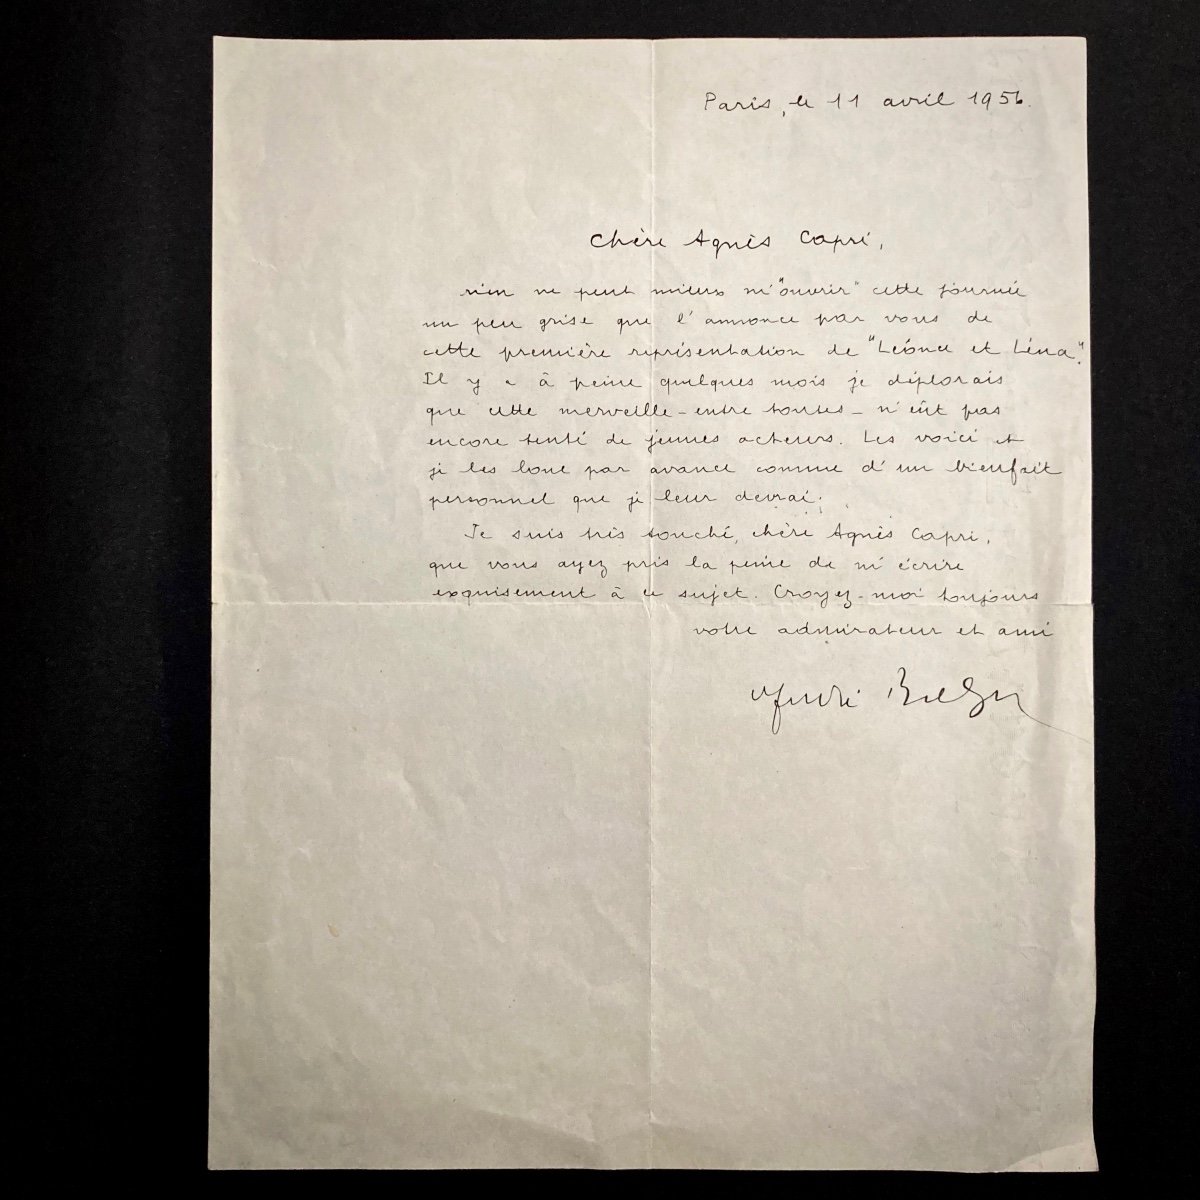 Paris, le 11 avril 1956.
Chère Agnès Capri,
rien ne peut mieux m'"ouvrir" cette journée
un peu grise que l'annonce par vous de
cette première représentation de "Léonce et Léna".
Il y a à peine quelques mois je déplorais
que cette merveille - entre toutes - n'eût pas
encore tenté de jeunes acteurs. Les voici et
je les loue par avance comme d'un bienfait
personnel que je leur devrai.
Je suis très touché, chère Agnès Capri,
que vous ayez pris la peine de m'écrire
exquisement à ce sujet. Croyez-moi toujours
votre admirateur et ami